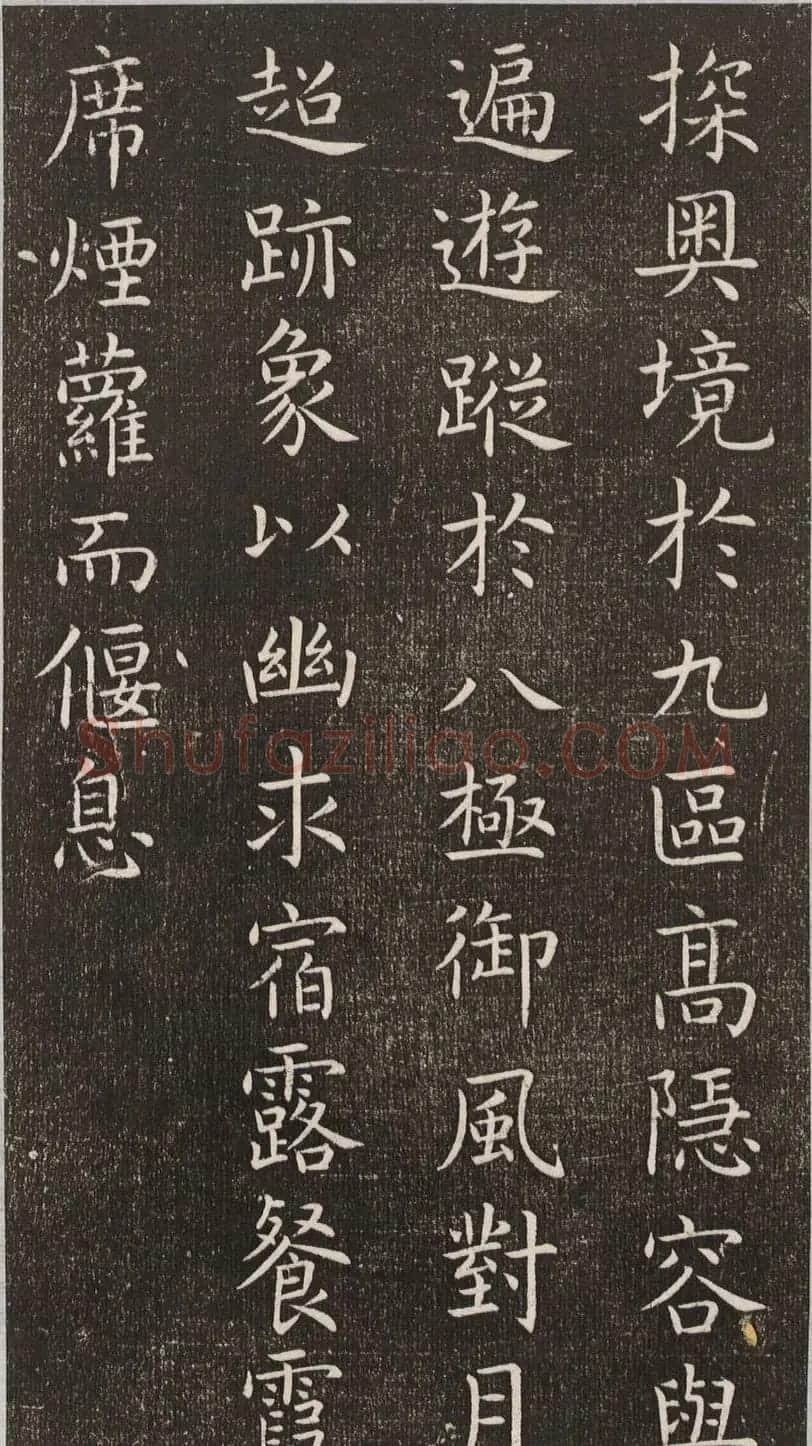 探奥境於九區高隱容與
遍遊蹤於八極御風對月
超跡象以幽求宿露餐霞
席煙蘿而偃息
Shufaziliao.COM